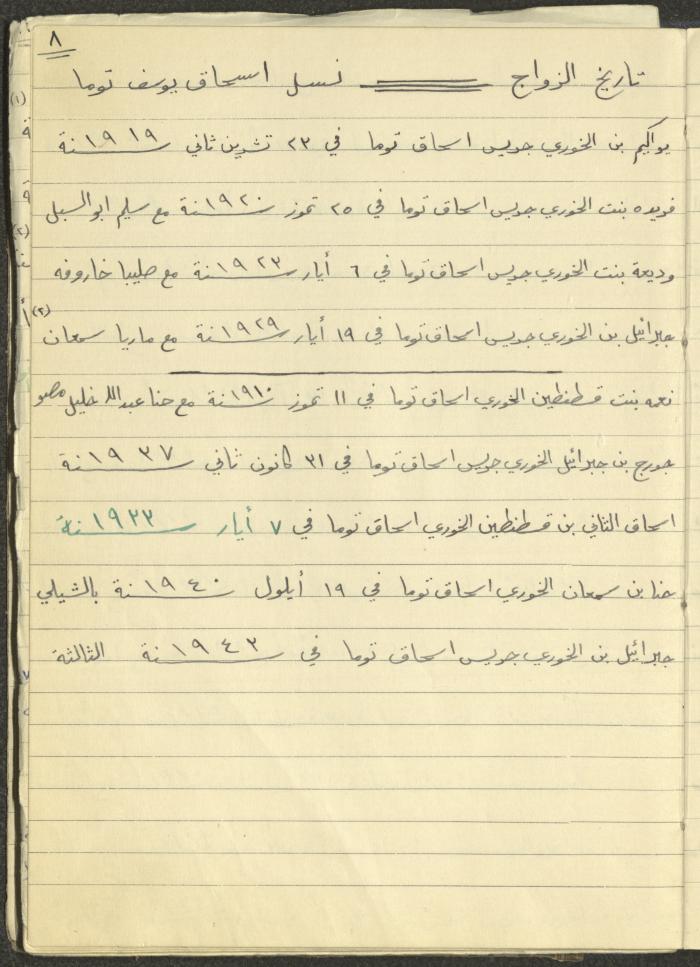 ٨
تاريخ الزواج نسل اسحاق يوسف توما
يواكيم بن الخوري جريس اسحاق توما في ٢٣ تشرين ثاني سنة ١٩١٩
فريده بنت الخوري جريس اسحاق توما في ٢٥ تموز سنة ١٩٢٠ مع سليم ابو السبل
وديعة بنت الخوري جريس اسحاق توما في ٦ أيار سنة ١٩٢٣ مع صليبا خاروفه
(٢) جبرائيل بن الخوري جريس اسحاق توما في ١٩ أيار سنة ١٩٢٩ مع ماريا سمعان
نعمه بنت قسطنطين الخوري اسحاق توما في ١١ تموز سنة ١٩١٠ مع حنا عبدالله خليل
جورج بن جبرائيل الخوري جريس اسحاق توما في ٣١ كانون ثاني سنة ١٩٣٧
اسحاق الثاني بن قسطنطين الخوري اسحاق توما في ٧ أيار سنة ١٩٣٣
حنا بن سمعان الخوري اسحاق توما في ١٩ أيلول سنة ١٩٤٠ بالشيلي
جبرائيل بن الخوري جريس اسحاق توما في سنة ١٩٤٣ الثالثة